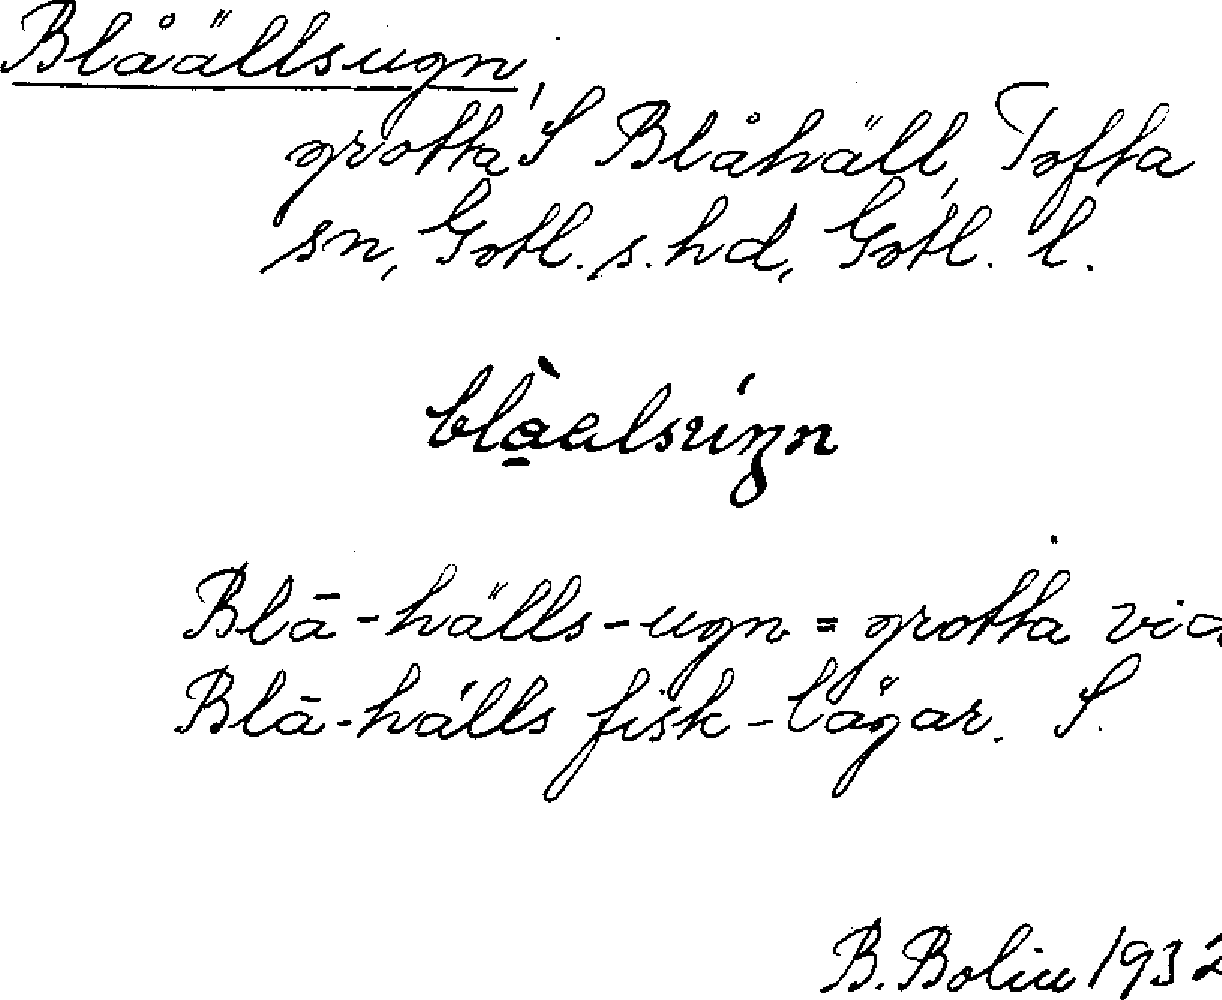 Blåällsugn,
grotta S Blåhäll, Tofta
sn, Gotl. s. hd, Gotl. l.
Blā-hälls-ugn = grotta vid
Blā-hälls fisk-lägar. S.
B. Bolin 1932